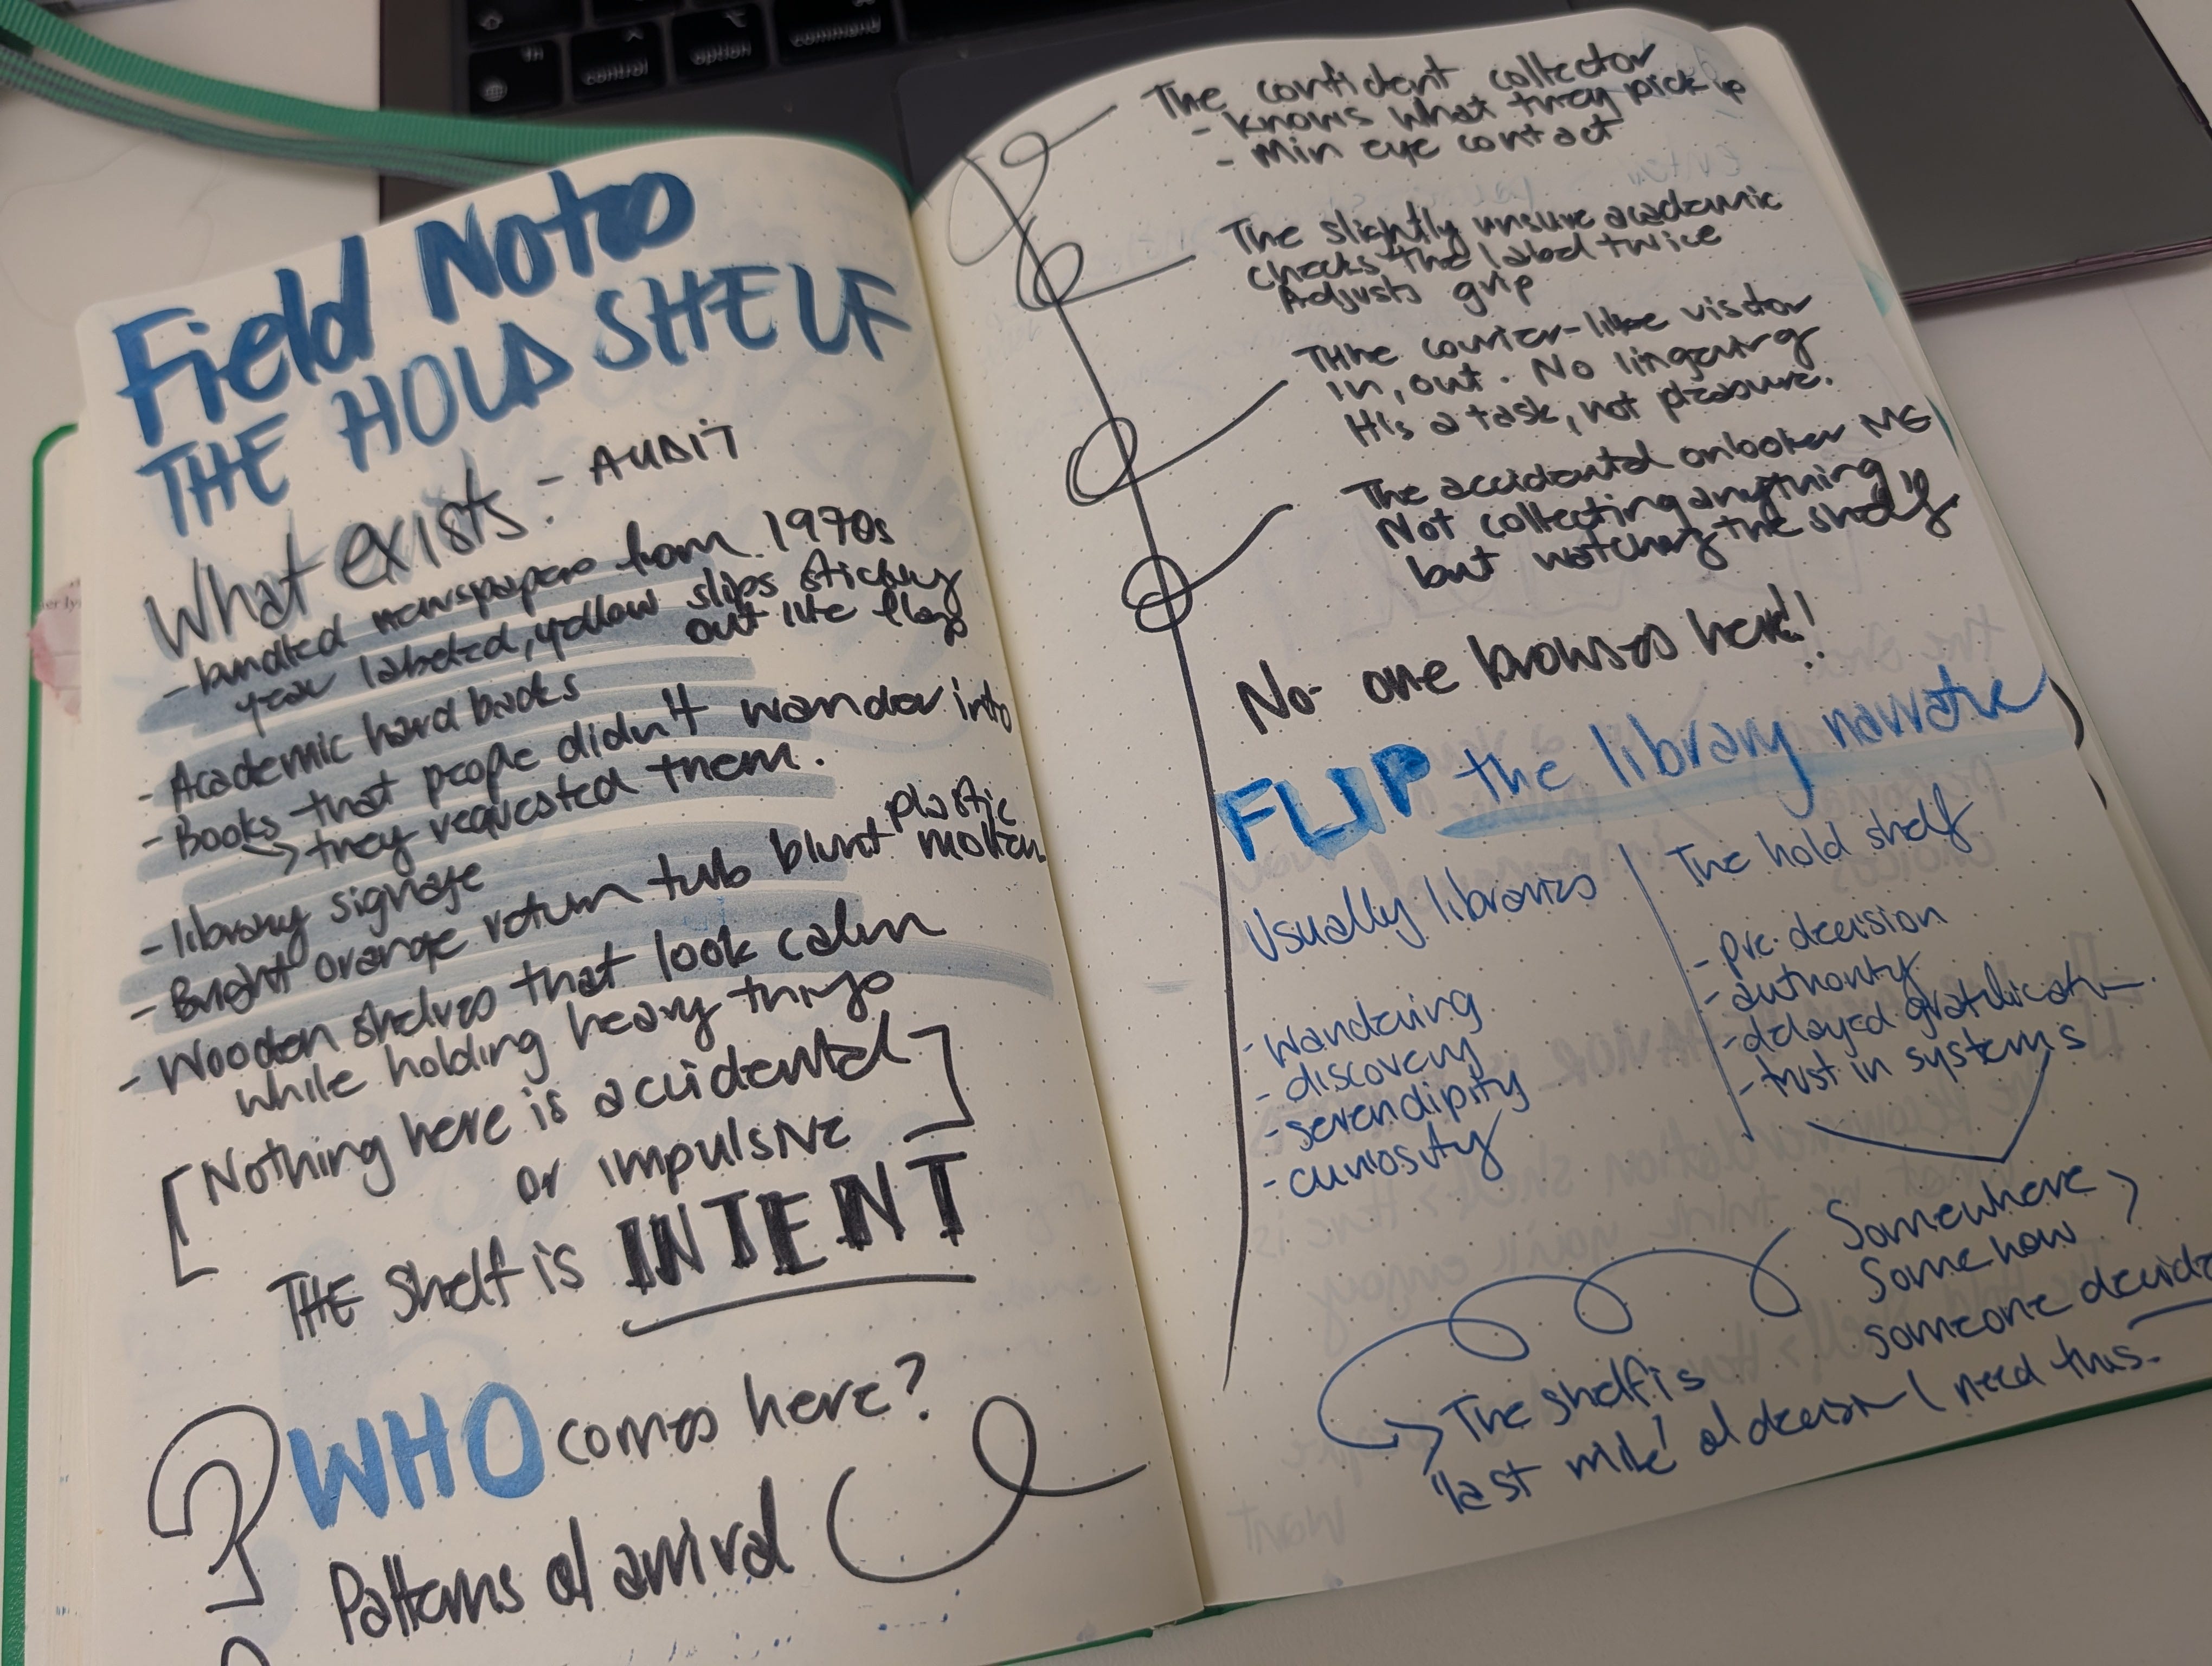 Field Notes
THE HOLD SHELF
What exists - AUDIT
- bundled newspapers from 1970s
year labeled, yellow slips sticking
out like flags
- Academic hard backs
- Books that people didn't wander into
→ they requested them.
- library signage
- Bright orange return tub blunt plastic
- Wooden shelves that look calm
while holding heavy things
[Nothing here is accidental
or impulsive]
THE shelf is INTENT
? WHO comes here?
Patterns of arrival
The confident collector
- knows what they pick up
- Min eye contact
The slightly unsure academic
checks the label twice
Adjusts grip
THhe courier-like visitor
In, out. No lingering
It's a task, not pleasure.
The accidental onlooker ME
Not collecting anything
but watching the shelf
No one browses here!!
FLIP the library narrative
Usually libraries
- Wandering
- discovery
- serendipity
- curiosity
The hold shelf
- pre-decision
- authority
- delayed gratification
- trust in systems
Somewhere
Somehow
someone decided
I need this.
The shelf is
'last mile' of decision
control
option
command
fn